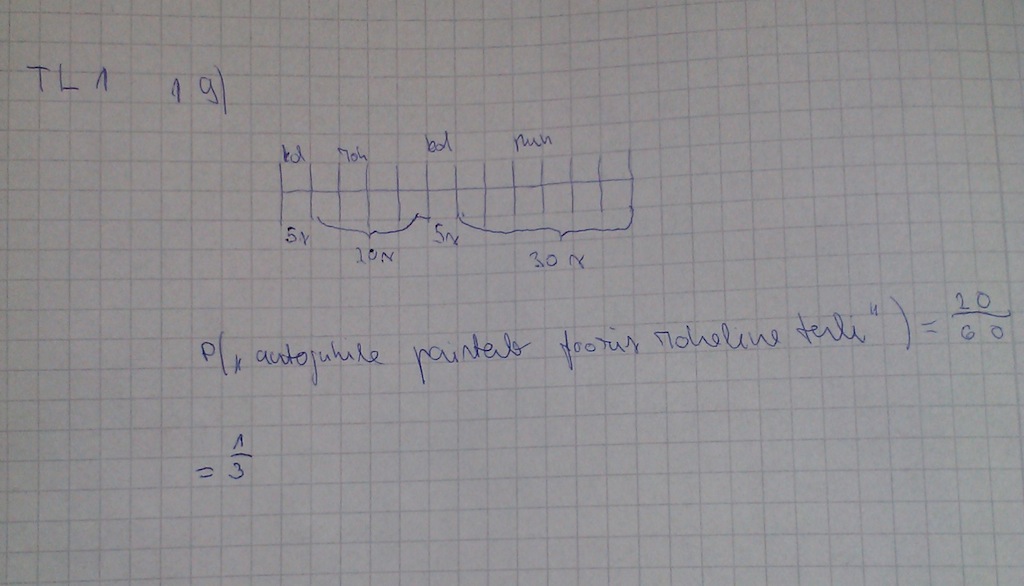 TL 1 19)
kol roh kol pun
5n 20n 5n 30n
P(„autojuhile paisteb fooris roheline tuli“) = 20/60
= 1/3